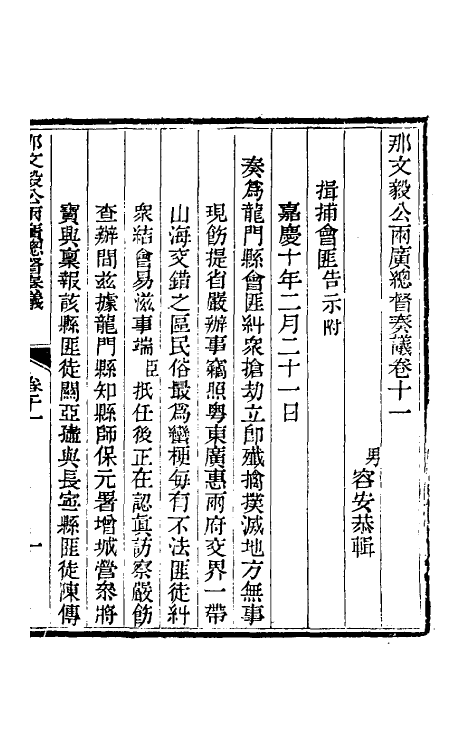 那文毅公兩廣總督奏議卷十一
男容安恭輯
揖捕會匪告示附
嘉慶十年二月二十一日
奏爲龍門縣會匪糾衆搶劫立卽殲擒撲滅地方無事
現飭提省嚴辦事竊照粵東廣惠兩府交界一帶
山海交錯之區民俗最爲蠻梗每有不法匪徒糾
衆結會易滋事端臣抵任後正在認眞訪察嚴飭
查辦間茲據龍門縣知縣師保元署增城營叅將
寶興稟報該縣匪徒關亞瓐與長寧縣匪徒陳傳
那文毅公兩廣總督奏議 卷十一 一